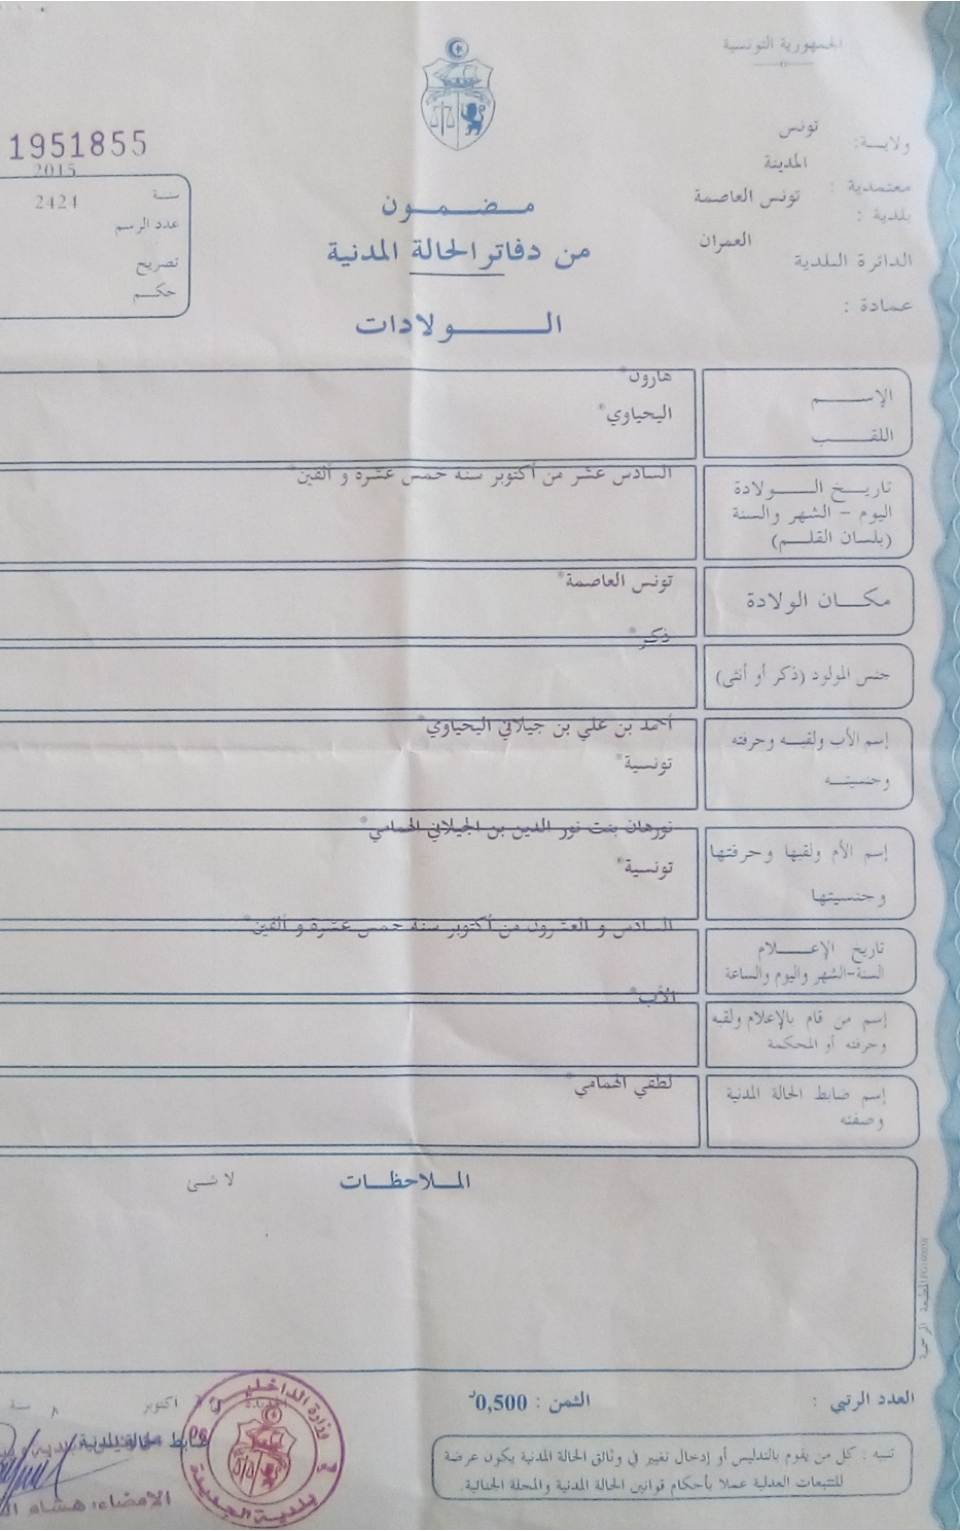 الجمهورية التونسية
ولاية: تونس
معتمدية : المدينة
بلدية : تونس العاصمة
الدائرة البلدية العمران
عمادة :
1951855
سنة 2015
عدد الرسم 2424
تصريح
حكم
مضمون
من دفاتر الحالة المدنية
الولادات
الإسم هارون*
اللقب اليحياوي*
تاريخ الولادة السادس عشر من أكتوبر سنة خمس عشرة و ألفين*
اليوم - الشهر والسنة
(بلسان القلم)
مكان الولادة تونس العاصمة*
جنس المولود (ذكر أو أنثى) ذكر*
إسم الأب ولقبه وحرفته أحمد بن علي بن جيلاني اليحياوي*
وجنسيته تونسية*
إسم الأم ولقبها وحرفتها نورهان بنت نور الدين بن الجيلاني الهمامي*
وجنسيتها تونسية*
تاريخ الإعلام السادس و العشرون من أكتوبر سنة خمس عشرة و ألفين*
السنة-الشهر واليوم والساعة
إسم من قام بالإعلام ولقبه الأب*
وحرفته أو المحكمة
إسم ضابط الحالة المدنية لطفي الهمامي*
وصفته
الملاحظات لا شى
المطبعة الرسمية
العدد الرتبي :
الثمن : 0,500د
تنبيه : كل من يقوم بالتدليس أو إدخال تغيير في وثائق الحالة المدنية يكون عرضة
للتتبعات العدلية عملا بأحكام قوانين الحالة المدنية والمجلة الجنائية.
أكتوبر
سنة
ضابط حالة المدنية
الامضاء: هشام
وزارة الداخلية
بلدية الجديدة